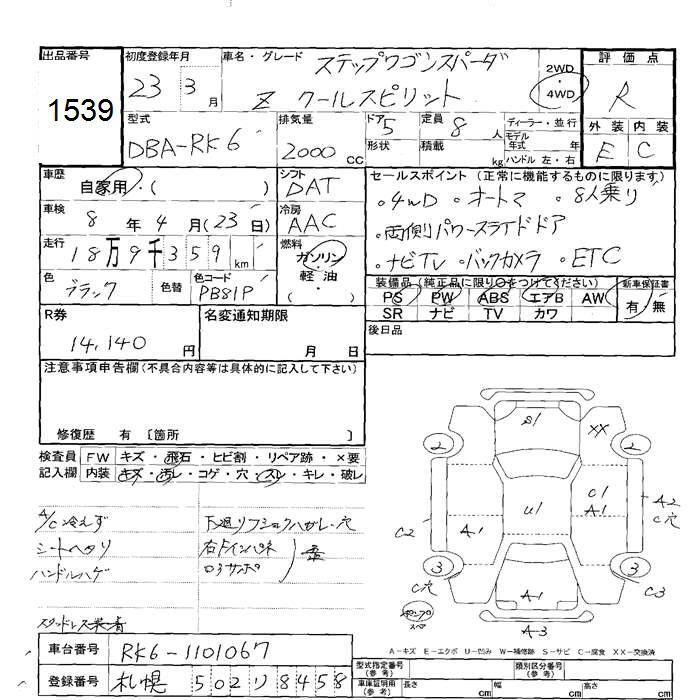 出品番号
1539
初度登録年月
23 3月
車名・グレード
ステップワゴンスパーダ
Z クールスピリット
2WD
・
4WD
評価点
R
外装 内装
E C
型式
DBA-RK6
排気量
2000cc
ドア 5
形状
定員 8人
積載 kg
ディーラー・並行
モデル年式 年
ハンドル 左・右
車歴
自家用・( )
シフト
DAT
車検
8年4月(23日)
冷房
AAC
走行
18万9千359km
燃料
ガソリン
軽油
( ・ )
色
ブラック
色替
色コード
PB81P
セールスポイント(正常に機能するものに限ります)
・4WD ・オートマ ・8人乗り
・両側パワースライドドア
・ナビTV ・バックカメラ ・ETC
装備品(純正品に限り○をつけてください)
PS PW ABS エアB AW
SR ナビ TV カワ
新車保証書
有 無
後日品
R券
14,140円
名変通知期限
月 日
注意事項申告欄(不具合内容等は具体的に記入して下さい)
修復歴 有 〔箇所 〕
検査員記入欄
FW キズ・飛石・ヒビ割・リペア跡・×要
内装 キズ・汚レ・コゲ・穴・スレ・キレ・破レ
A/C冷えず
シートヘタリ
ハンドルハゲ
スタッドレス装着
下廻りフショクハガレ・穴
右Fインパネ
S1
XX
2 2
U1
C1
A1
A1
A2
C穴
C2
3 3
C穴
C3
A-1
A-3
A-キズ E-エクボ U-凹み W-補修跡 S-サビ C-腐食 XX-交換済
車台番号
RK6-1101067
登録番号
札幌 502 リ 8458
型式指定番号(参考)
類別区分番号(参考)
車庫証明用(参考)
長さ cm 幅 cm 高さ cm